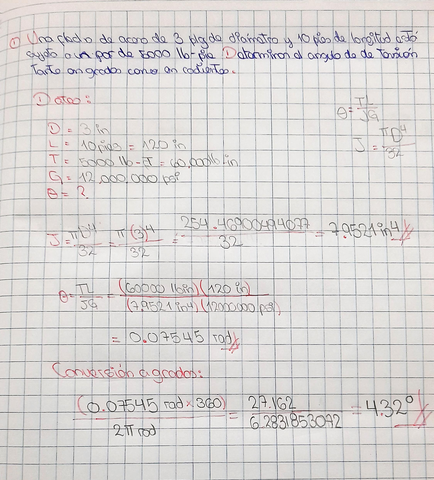 ① Una flecha de acero de 3 plg de diámetro y 10 pies de longitud está
sujeta a un par de 5000 lb-pie ① Determinar el angulo de de Torsión
tanto en grados como en radientes.
① Datos:
θ = TL/JG
D = 3 in
J = πD⁴/32
L = 10 pies = 120 in
T = 5000 lb-ft = 60,000 lb in
G = 12,000,000 psi
θ = ?
J = πD⁴/32 = π(3)⁴/32 = 254.46900494077/32 = 7.9521 in⁴
θ = TL/JG = (60000 lb in)(120 in)/(7.9521 in⁴)(12000000 psi)
= 0.07545 rad
Conversión a grados:
(0.07545 rad × 360)/2π rad = 27.162/6.2831853072 = 4.32°